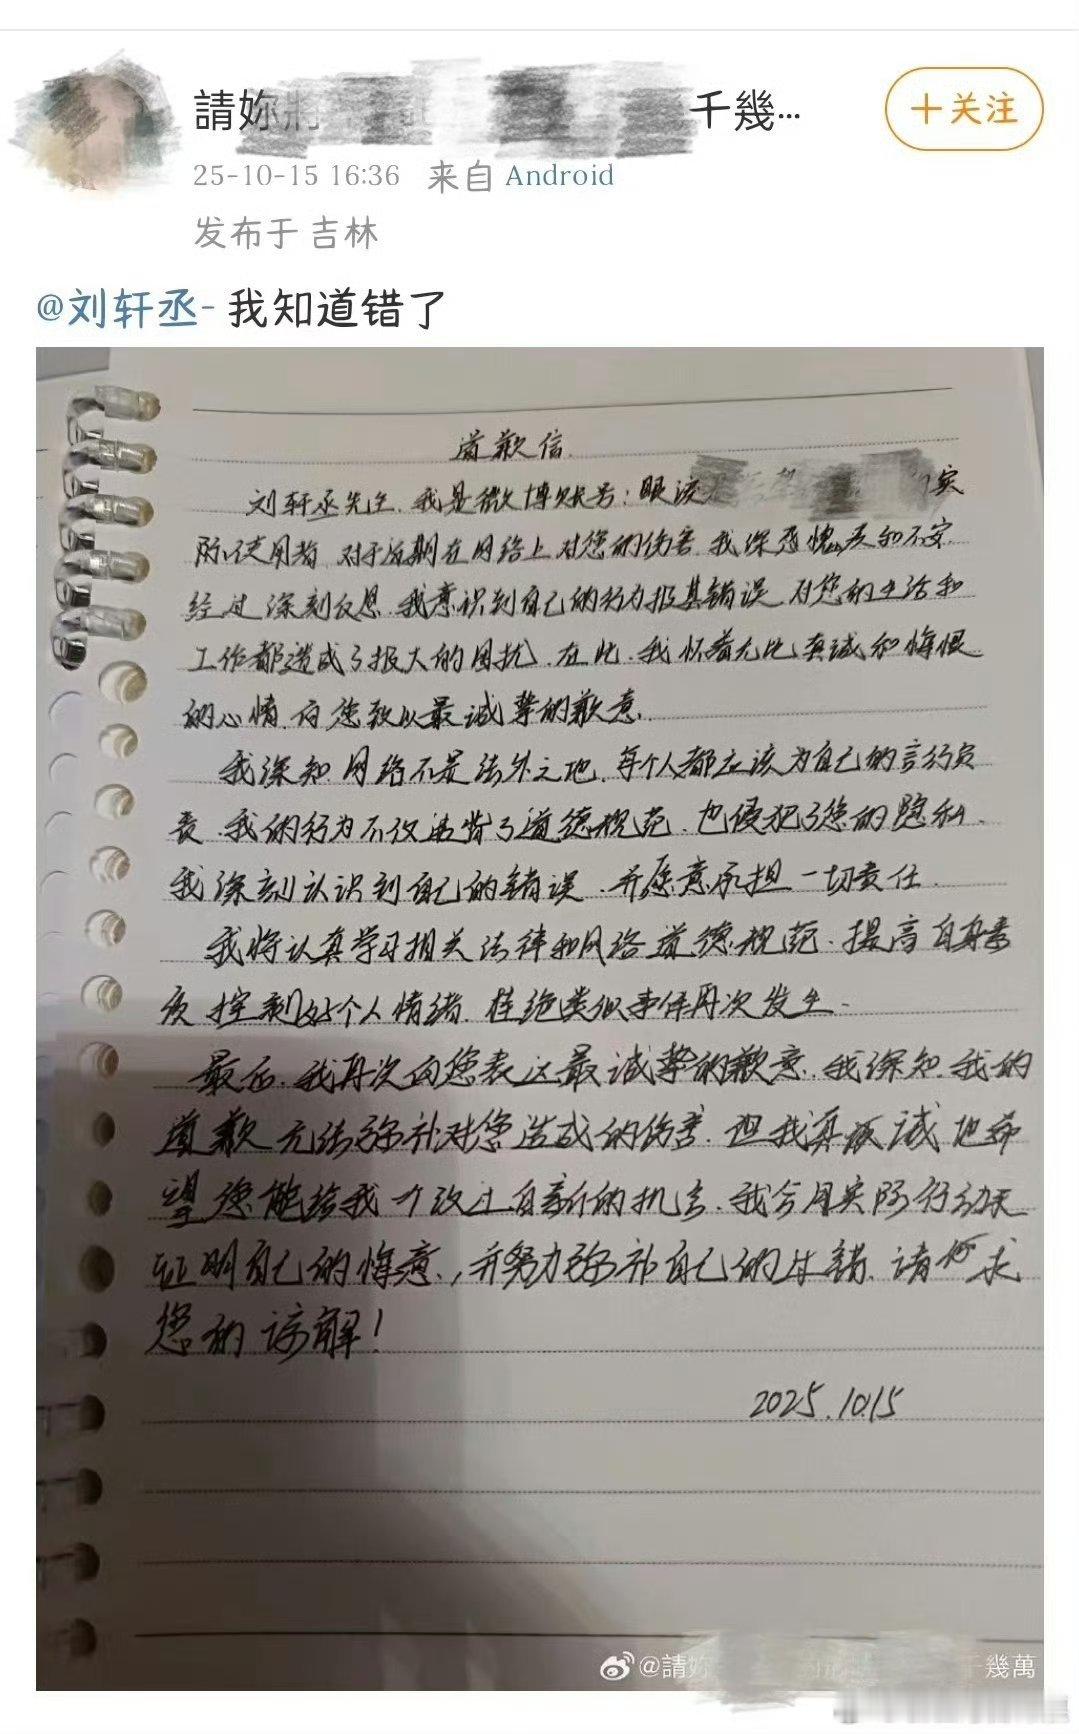 請妳 千幾...
+关注
25-10-15 16:36 来自 Android
发布于 吉林
@刘轩丞- 我知道错了
道歉信
刘轩丞先生.我是微博账号:眼泪 实
际使用者.对于近期在网络上对您的伤害.我深感愧疚和不安
经过深刻反思.我意识到自己的行为极其错误.对您的生活和
工作都造成了极大的困扰.在此.我怀着无比真诚和悔恨
的心情.向您致以最诚挚的歉意.
我深知网络不是法外之地.每个人都应该为自己的言行负
责.我的行为不仅违背了道德规范.也侵犯了您的隐私.
我深刻认识到自己的错误.并愿意承担一切责任.
我将认真学习相关法律和网络道德规范.提高自身素
质 控制好个人情绪.杜绝类似事件再次发生.
最后.我再次向您表达最诚挚的歉意.我深知.我的
道歉无法弥补对您造成的伤害.但我真诚地希
望您能给我一个改过自新的机会.我会用实际行动来
证明自己的悔意.,并努力弥补自己的过错.请求
您的谅解!
2025.10.15
@請妳 千幾萬